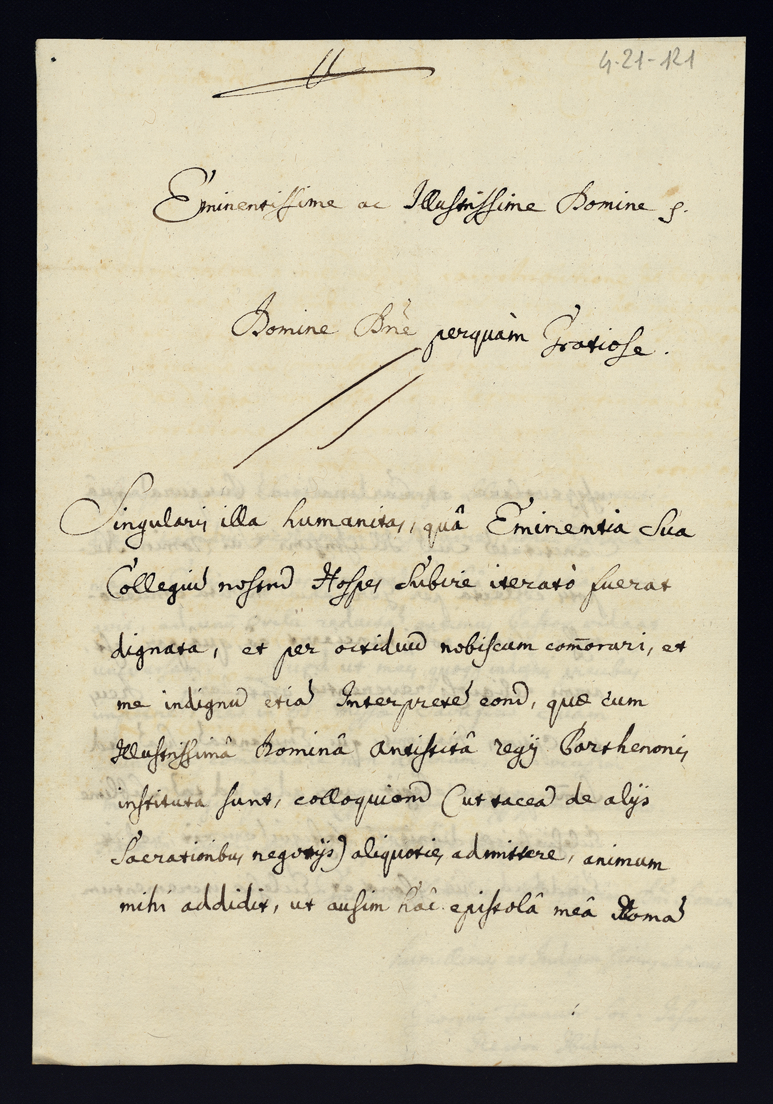 4-21-121
Eminentissime ac Illustrissime Domine
Domine Dñe perquàm Gratiose.
Singularis illa humanitas, quâ Eminentia Sua
Collegiũ nostrũ Hospes Subire iteratò fuerat
dignata, et per octiduũ nobiscum com̄orari, et
me indignũ etiã Interpretẽ eorũ, quæ cum
Illustrissimâ Dominâ Antistitâ regij Parthenonis
instituta sunt, colloquiorũ (ut taceã de alijs
Sacrationibus negotijs) aliquoties admittere, animum
mihi addidit, ut ausim hâc epistolâ meâ Romã